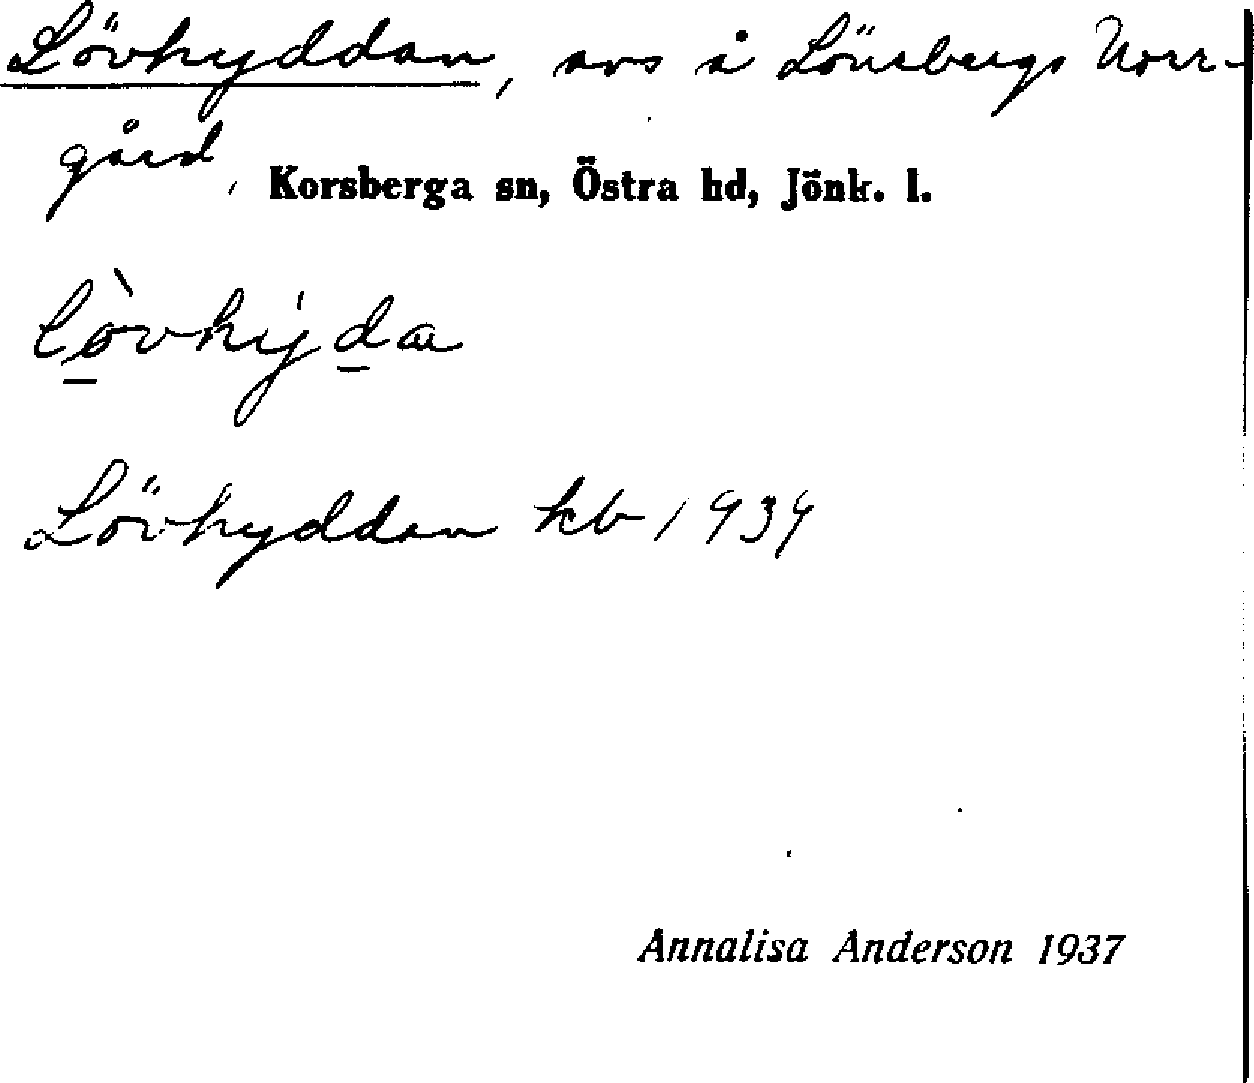 Lövhyddan, avs å Lönsbergs Norr-
gård, Korsberga sn, Östra hd, Jönk. l.
Lövhyddan kb 1934
Annalisa Anderson 1937